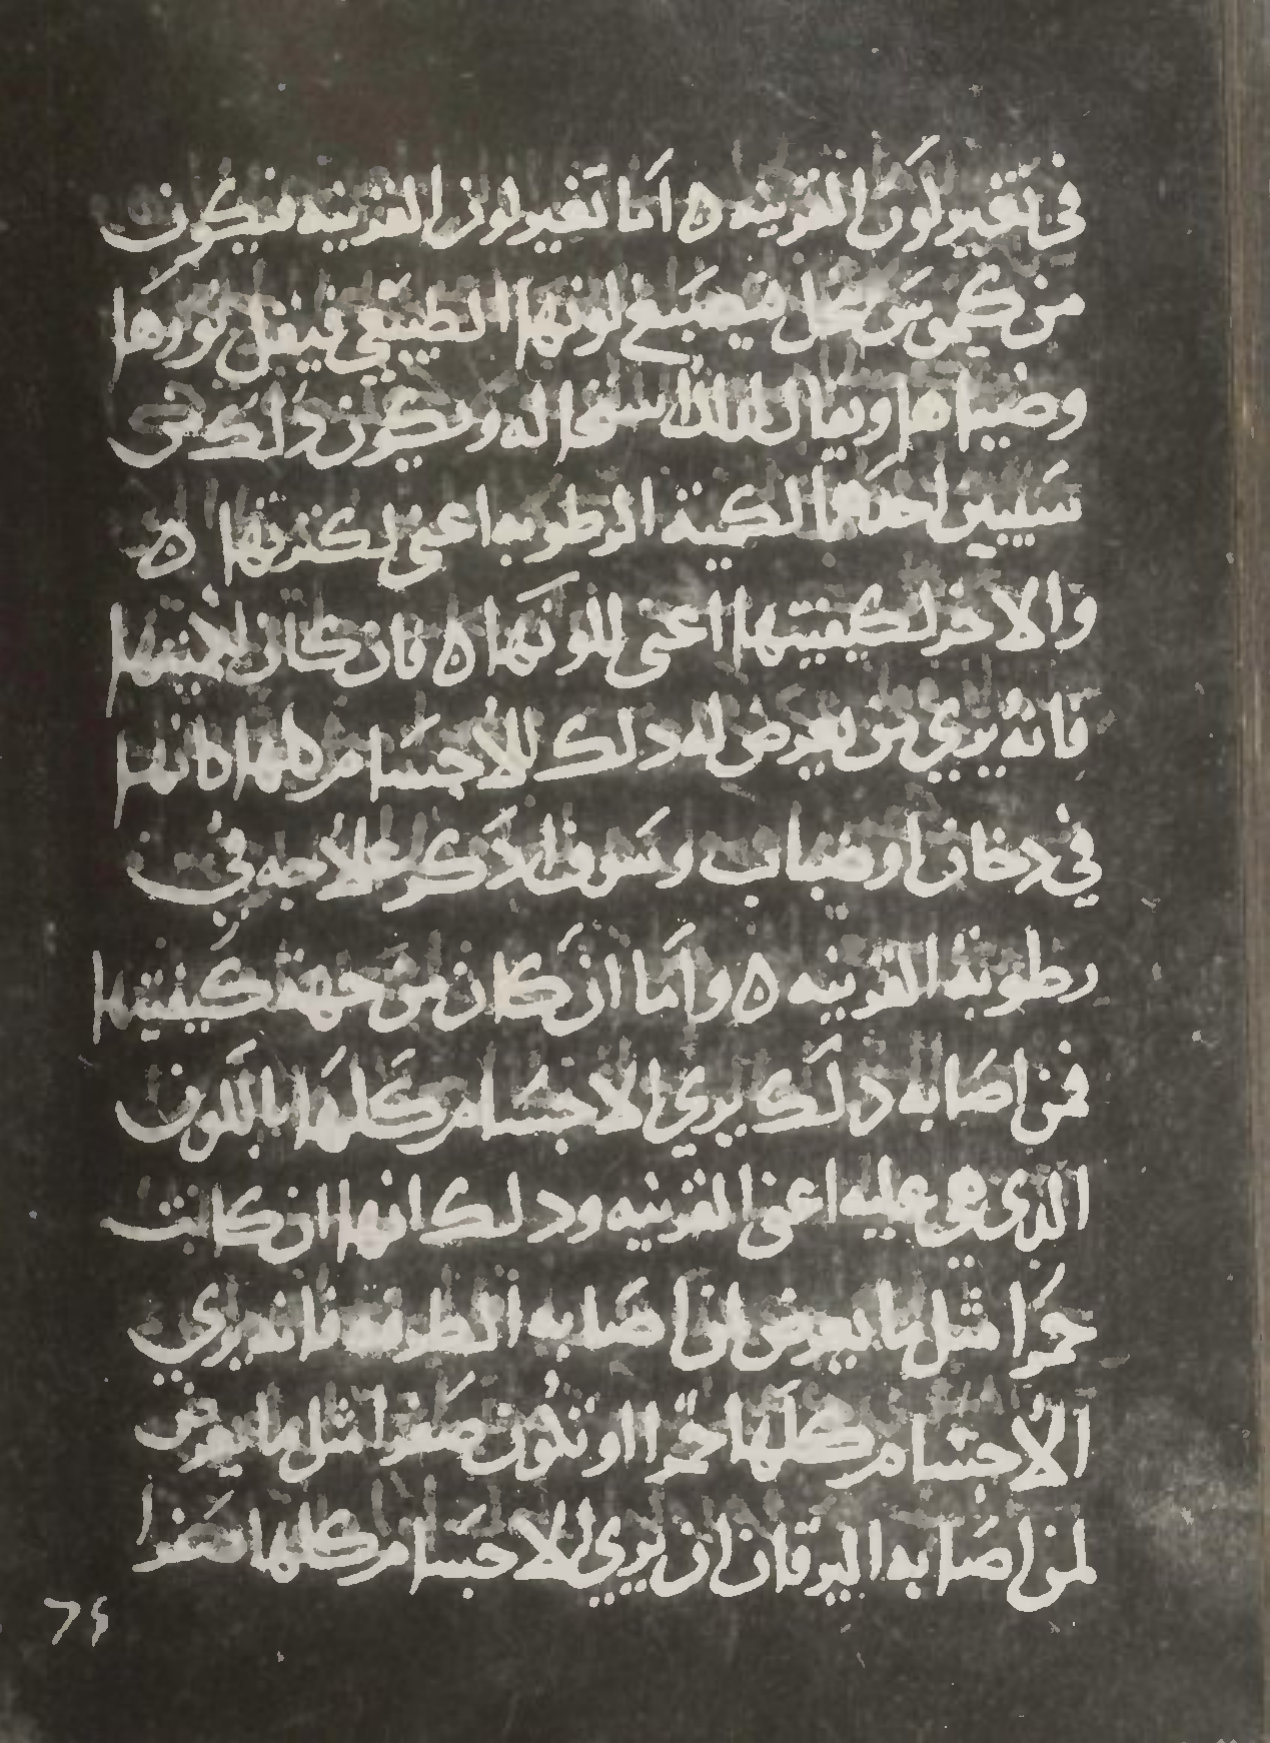 في تغير لون القرنيه ه اما تغير لون القرنيه فيكون
من كيموس كحل فيصبغ لونها الطبيعي فيقل نورها
وضياها ويقال لذلك استحاله ويكون ذلك في
سببين احدهما لكمية الرطوبه اعني لكثرتها ه
والاخر لكيفيتها اعني للونها ه فان كان لكميتها
فانه يري من يعرض له ذلك للاجسام كلها كانها
في دخان او ضباب وسوف اذكر علاجه في
رطوبة القرنيه ه واما ان كان من جهة كيفيتها
فمن اصابه ذلك يري الاجسام كلها باللون
الذي هي عليه اعني القرنيه وذلك انها ان كانت
حمرا مثل ما يعرض لمن اصابه الطرفه فانه يري
الاجسام كلها حمرا او تكون صفرا مثل ما يعرض
لمن اصابه اليرقان ان يري الاجسام كلها صفرا